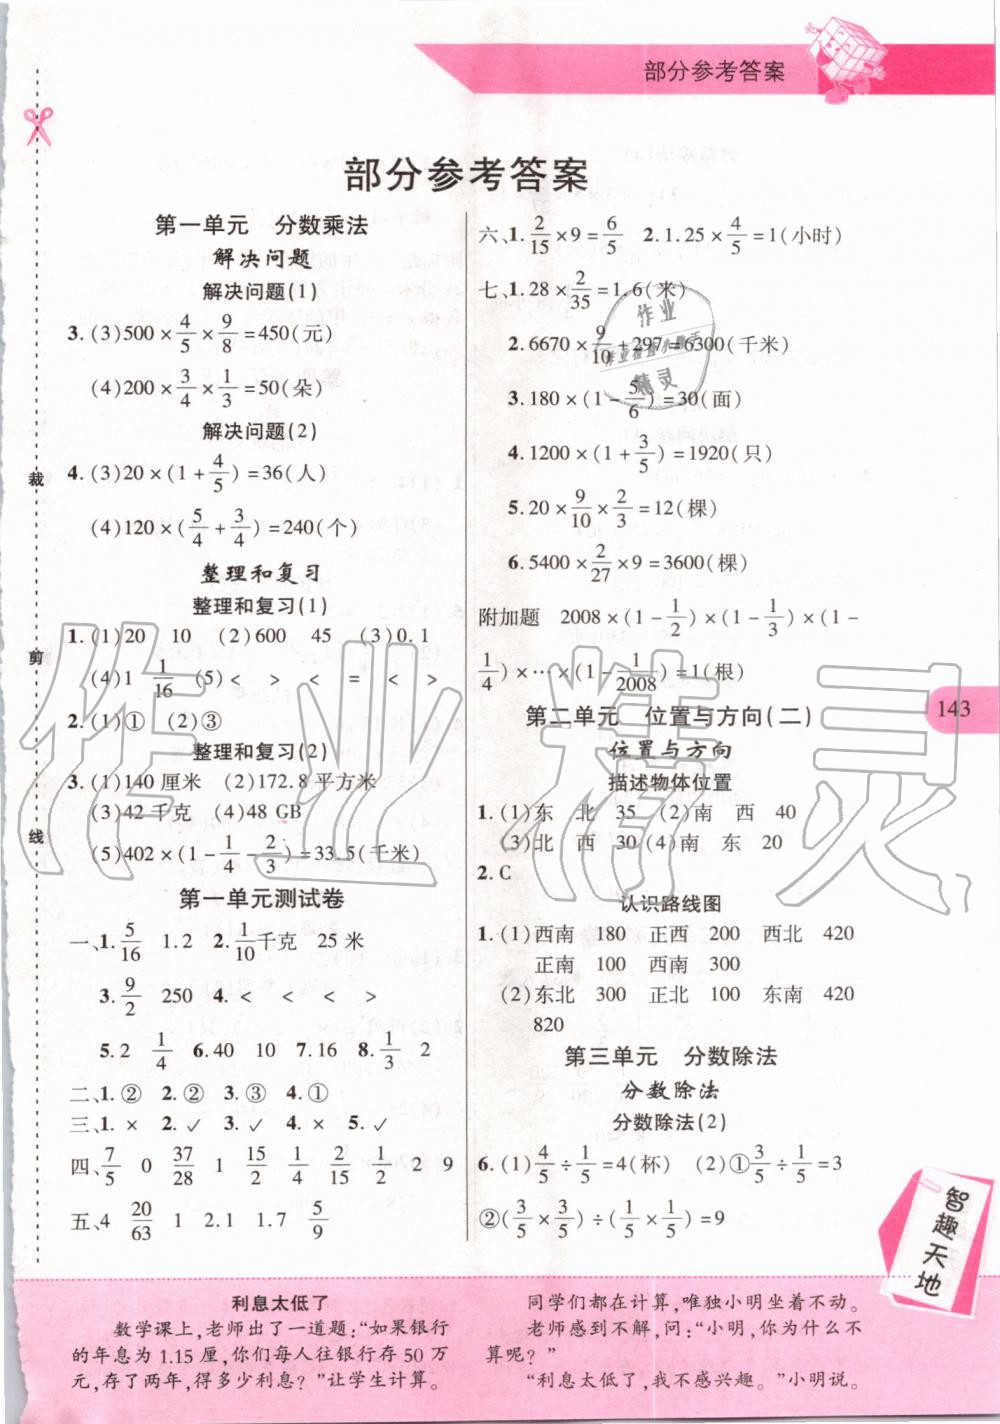 部分参考答案
部分参考答案
第一单元 分数乘法
解决问题
解决问题(1)
3. (3)500×4/5×9/8=450(元)
(4)200×3/4×1/3=50(朵)
解决问题(2)
4. (3)20×(1+4/5)=36(人)
(4)120×(5/4+3/4)=240(个)
整理和复习
整理和复习(1)
1. (1)20 10 (2)600 45 (3)0.1
(4)1 1/16 (5)< > < = < >
2. (1)① (2)③
整理和复习(2)
3. (1)140厘米 (2)172.8平方米
(3)42千克 (4)48 GB
(5)402×(1-1/4-2/3)=33.5(千米)
第一单元测试卷
一、1. 5/16 1.2 2. 1/10千克 25米
3. 9/2 250 4. < < < >
5. 2 1/4 6. 40 10 7. 16 8. 1/3 2
二、1. ② 2. ② 3. ③ 4. ①
三、1. × 2. ✓ 3. ✓ 4. × 5. ✓
四、7/5 0 37/28 1 15/2 1/4 2/15 1/2 2 9
五、4 20/63 1 2.1 1.7 5/9
六、1. 2/15×9=6/5 2. 1.25×4/5=1(小时)
七、1. 28×2/35=1.6(米)
2. 6670×9/10+297=6300(千米)
3. 180×(1-5/6)=30(面)
4. 1200×(1+3/5)=1920(只)
5. 20×9/10×2/3=12(棵)
6. 5400×2/27×9=3600(棵)
附加题 2008×(1-1/2)×(1-1/3)×(1-
1/4)×…×(1-1/2008)=1(根)
第二单元 位置与方向(二)
位置与方向
描述物体位置
1. (1)东 北 35 (2)南 西 40
(3)北 西 30 (4)南 东 20
2. C
认识路线图
1. (1)西南 180 正西 200 西北 420
正南 100 西南 300
(2)东北 300 正北 100 东南 420
820
第三单元 分数除法
分数除法
分数除法(2)
6. (1)4/5÷1/5=4(杯) (2)①3/5÷1/5=3
②(3/5×3/5)÷(1/5×1/5)=9
143
裁
剪
线
智趣天地
利息太低了
数学课上,老师出了一道题:“如果银行
的年息为1.15厘,你们每人往银行存50万
元,存了两年,得多少利息?”让学生计算。
同学们都在计算,唯独小明坐着不动。
老师感到不解,问:“小明,你为什么不
算呢?”
“利息太低了,我不感兴趣。”小明说。
作业
精灵
作业精灵